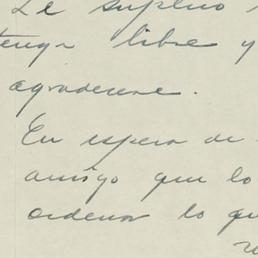 Le suplico
tenga libre y
agradecere.
En espera de
amigo que lo
ordenar lo qu